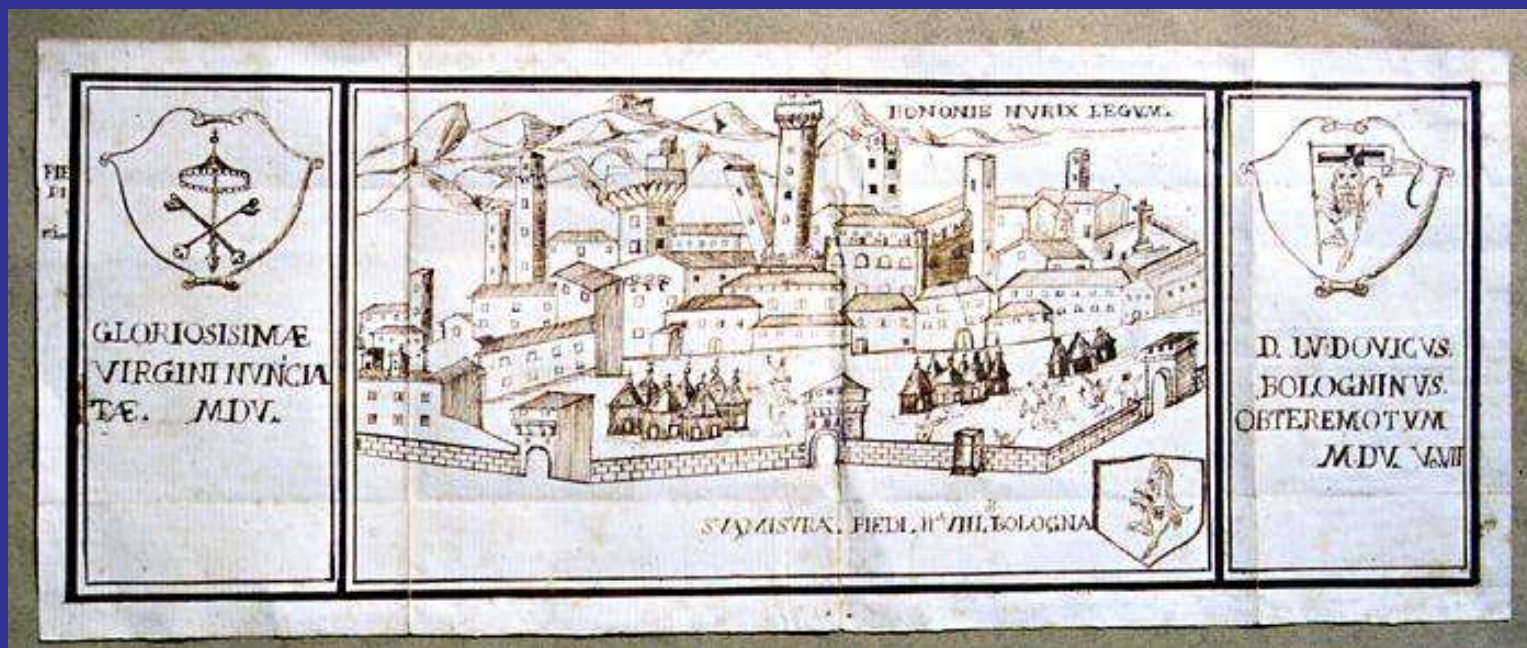 GLORIOSISIMÆ
VIRGINI NUŃCIA
TÆ. MDV.
BONONIE NVRIX LEGVM.
SVA MISVRA. PIEDI. VIIII. BOLOGNA
D. LVDOVICVS.
BOLOGNINVS.
OBTEREMOTVM
MDV.
PIE
DI